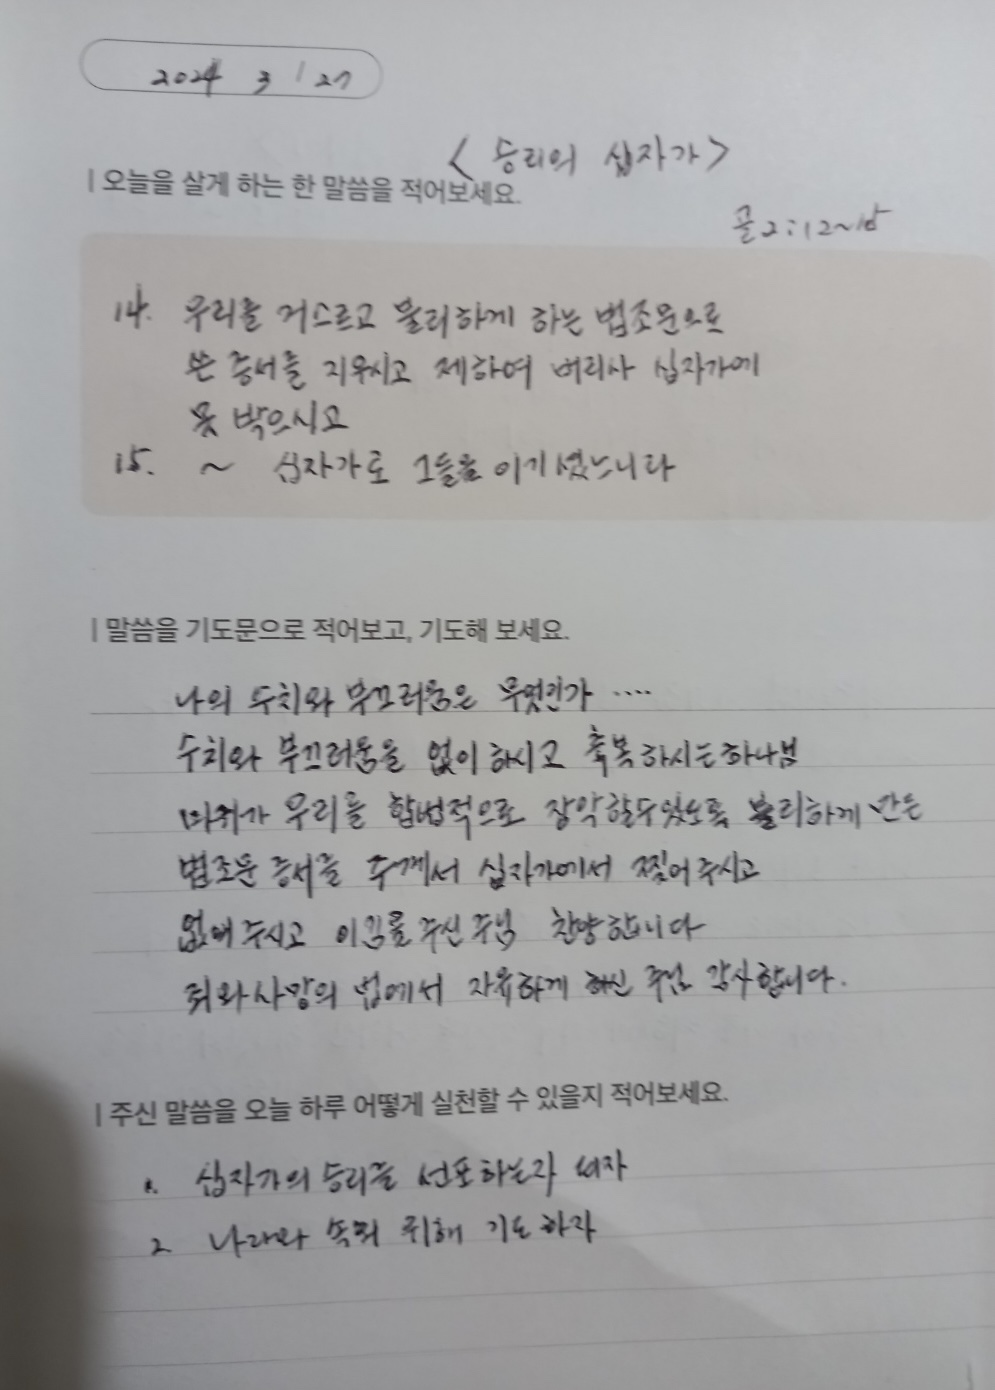 2024 3/27
<승리의 십자가>
| 오늘을 살게 하는 한 말씀을 적어보세요.
골2:12~15
14. 우리를 거스르고 불리하게 하는 법조문으로
쓴 증서를 지우시고 제하여 버리사 십자가에
못 박으시고
15. ~ 십자가로 그들을 이기셨느니라
| 말씀을 기도문으로 적어보고, 기도해 보세요.
나의 수치와 부끄러움은 무엇인가 ....
수치와 부끄러움을 없이 하시고 축복하시는 하나님
마귀가 우리를 합법적으로 장악할수있도록 불리하게 만든
법조문 증서를 주께서 십자가에서 찢어 주시고
없애 주시고 이김을 주신 주님 찬양합니다
죄와 사망의 법에서 자유하게 하신 주님 감사합니다.
| 주신 말씀을 오늘 하루 어떻게 실천할 수 있을지 적어보세요.
1. 십자가의 승리를 선포하는자 되자
2 나라와 위해 기도하자